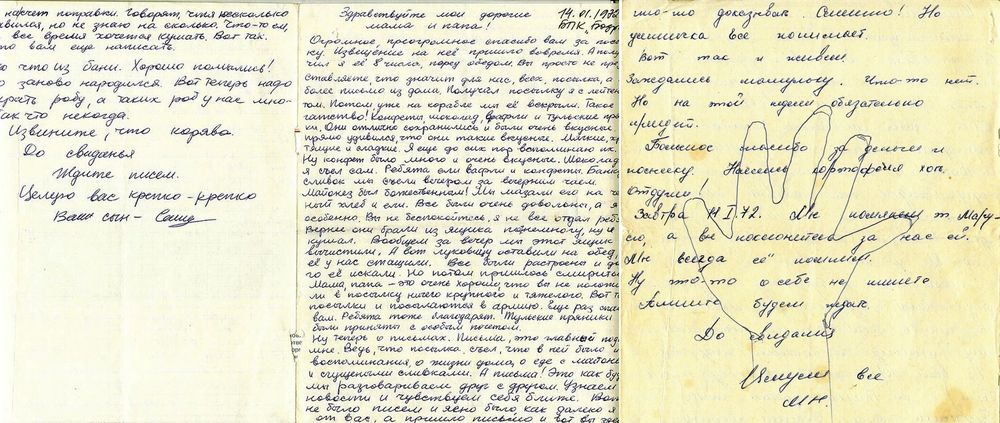 насчет поправки. Говорят, что я несколько
но не знаю на сколько. Что-то ем,
все время хочется кушать. Вот так.
вам еще написать.
что из бани. Хорошо помылись!
заново народился. Вот теперь надо
робу, а таких роб у нас мно-
так что некогда.
Извините, что коряво.
До свиданья
Ждите писем.
Целую вас крепко-крепко
Ваш сын – Саша
Здравствуйте мои дорогие
мама и папа!
14.01.1972
БПК
Огромное, преогромное спасибо вам за
ку. Извещение на неё пришло вовремя. А полу
чил я её 8 числа, перед обедом. Вы просто не пре
ставляете, что значит для нас, всех, посылка, а
более письмо из дома. Получал посылку я с лейтен
том. Потом уже на корабле мы её вскрыли. Такое
гатство! Конфеты, шоколад, вафли и тульские пря
ки. Они отлично сохранились и были очень вкусные.
прямо удивился, что они такие вкусные. Мягкие,
тящие и сладкие. Я еще до сих пор вспоминаю их.
Ну конфет было много и очень вкусные. Шоколад
я съел сам. Ребята ели вафли и конфеты. Банк
сливок мы съели вечером за вечерним чаем.
Майонез был божественным! Мы мазали его на
ный хлеб и ели. Все были очень довольны, а я
особенно. Вы не беспокойтесь, я не все отдал ребя
Вернее они брали из ящика понемногу, ну и
кушал. Вообщем за вечер мы этот ящик
вычистили. А вот луковицу оставили на обед,
её у нас стащили. Все были растроены и
го её искали. Но потом пришлось смирить
Мама, папа – это очень хорошо, что вы не полож
ли в посылку ничего крупного и тяжелого. Вот
посылки и посылаются в армию. Еще раз спас
вам. Ребята тоже благодарят. Тульские пряники
были приняты с особым почетом.
Ну теперь о письмах. Письма, это главный под
мне. Ведь, что посылка, съел, что в ней было и
воспоминания, о жизни дома, о еде с майоне
и сгущеными сливками. А письма! Это как буд
мы разговариваем друг с другом. Узнаем
новости и чувствуем себя ближе. Вот
не было писем и ясно было как далеко я
от вас, а пришло письмо и вот вы
что-то доказывая Но
все понимает.
Вот так и живем.
Заждались что-то нет.
Но на той недели обязательно
придет.
Большое спасибо за деньги и
посылку. Наешьтесь картофеля хоть
Завтра 14 I. 72. Мы т. Мару-
сю, а вы поклонитесь за нас ей.
Мы всегда её помним.
Ну что-то о себе не пишете
Пишите будем ждать.
До свидания
Целуем все